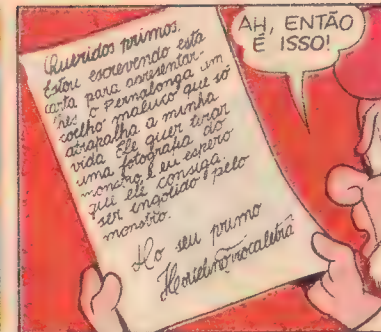 Queridos primos,
Estou escrevendo esta
carta para apresentar-
lhes o Pernalonga um
coelho maluco que só
atrapalha a minha
vida. Ele quer tirar
uma fotografia do
monstro, e eu espero
que ele consiga
ser engolido pelo
monstro.
Do seu primo
Hortelino Trocaletra
AH, ENTÃO
É ISSO!